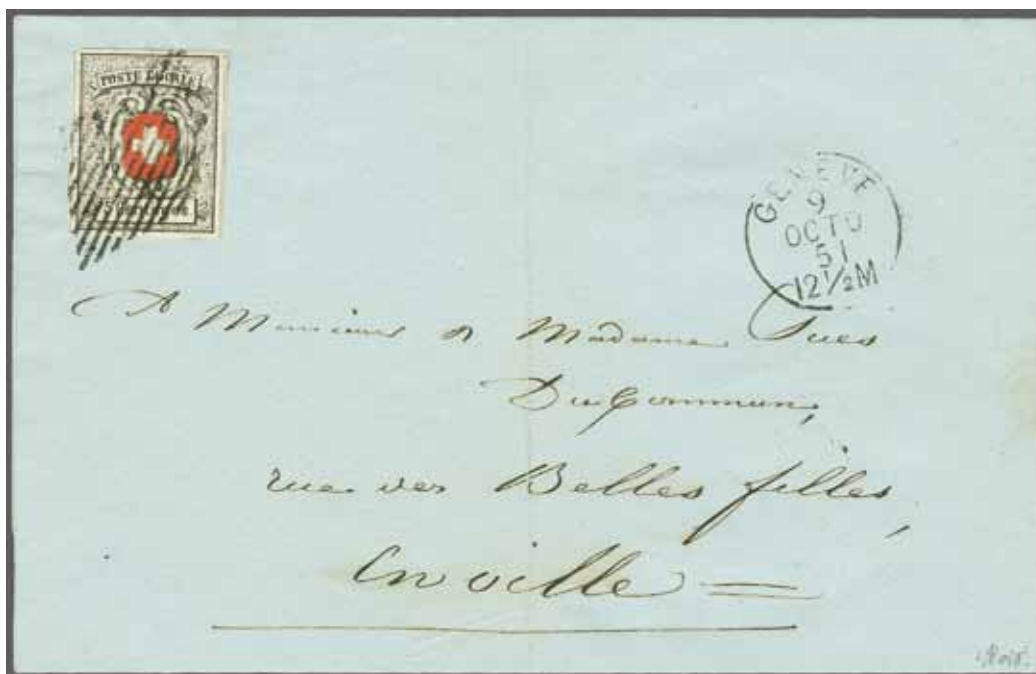 POSTE LOCALE
GENEVE
9
OCTO
51
12½M
A Monsieur & Madame
DuCommun,
rue des Belles filles,
En ville